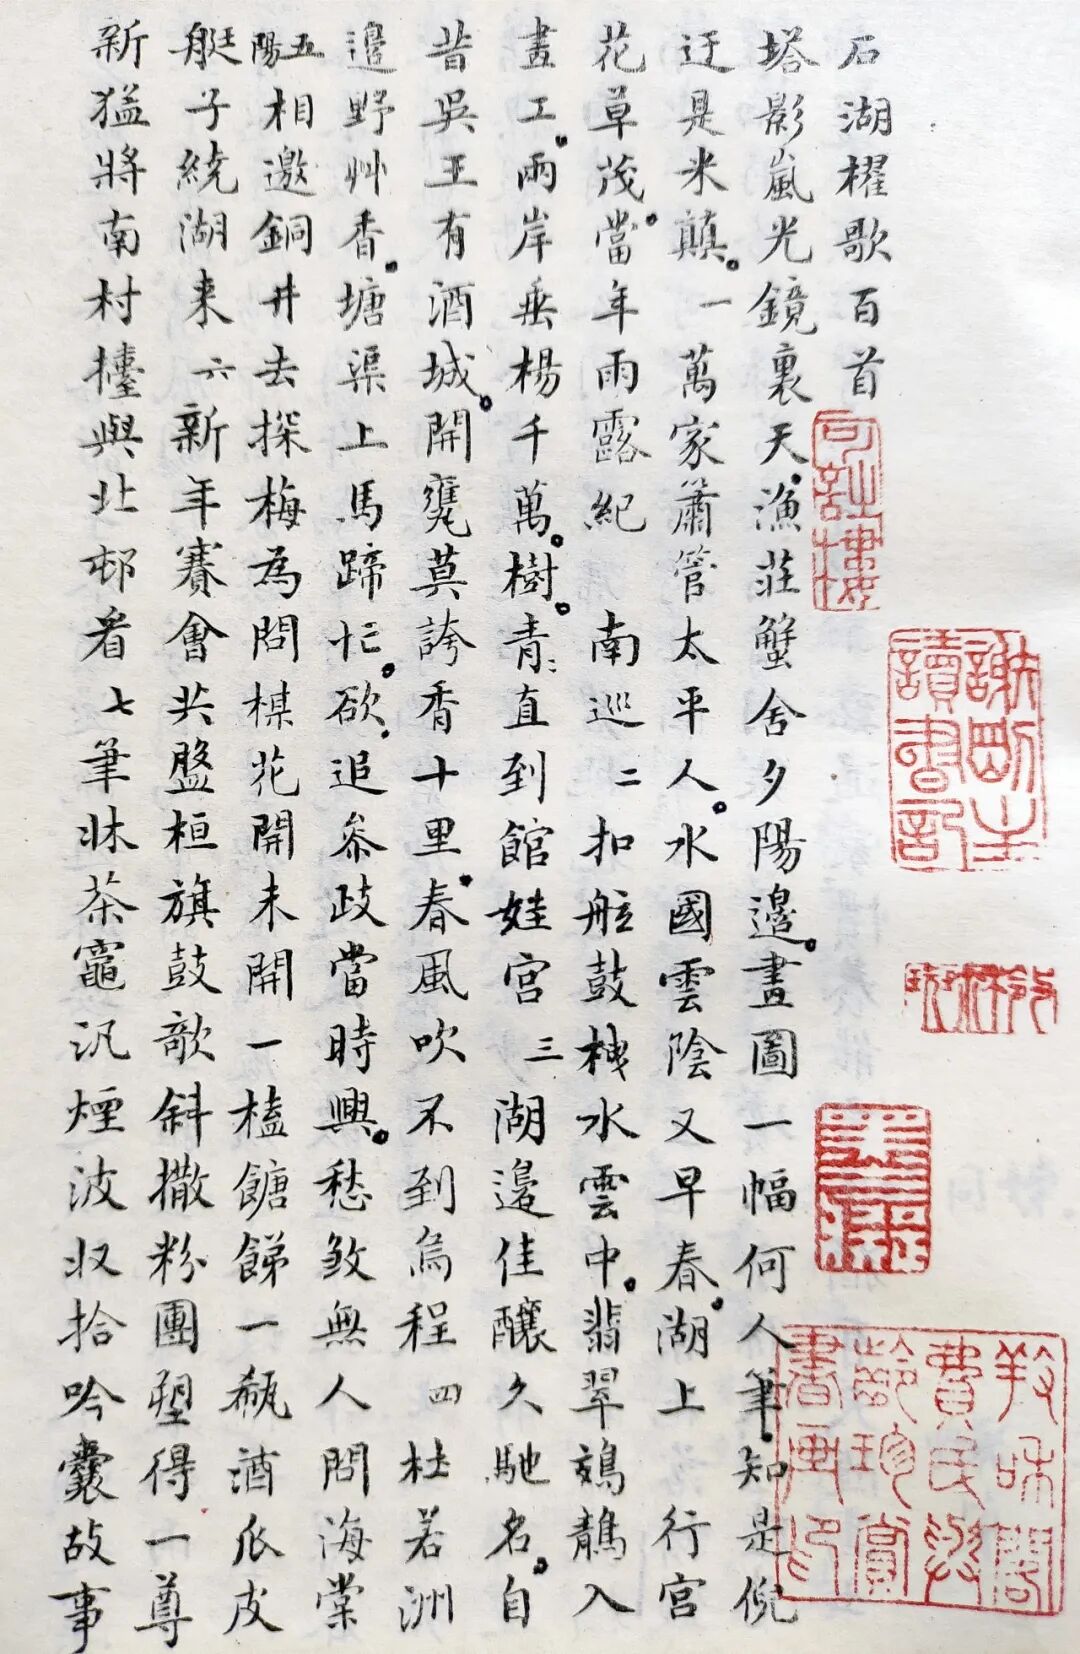 石湖櫂歌百首
塔影嵐光鏡裏天漁莊蟹舍夕陽邊畫圖一幅何人筆知是倪
迂是米顛一萬家簫管太平人水國雲陰又早春湖上行宮
花草茂當年雨露紀南巡二扣舷鼓枻水雲中翡翠鵁鶄入
畫工兩岸垂楊千萬樹青青直到館娃宮三湖邊佳釀久馳名自
昔吳王有酒城開甕莫誇香十里春風吹不到烏程四杜若洲
邊野艸香塘渠上馬蹄忙欲追 歧當時興愁 無人問海棠
五陽相邀銅井去探梅為問楳花開未開一榼餹餳一瓻酒瓜皮
艇子繞湖来六新年賽會共盤桓旗鼓歌斜撒粉團塑得一尊
新猛將南村擡與北邨看七筆牀茶竈汎煙波収拾吟囊故事
可誰樓
謝剛主讀書記
姜殿揚
羚味閣費民興齡珍賞書画印